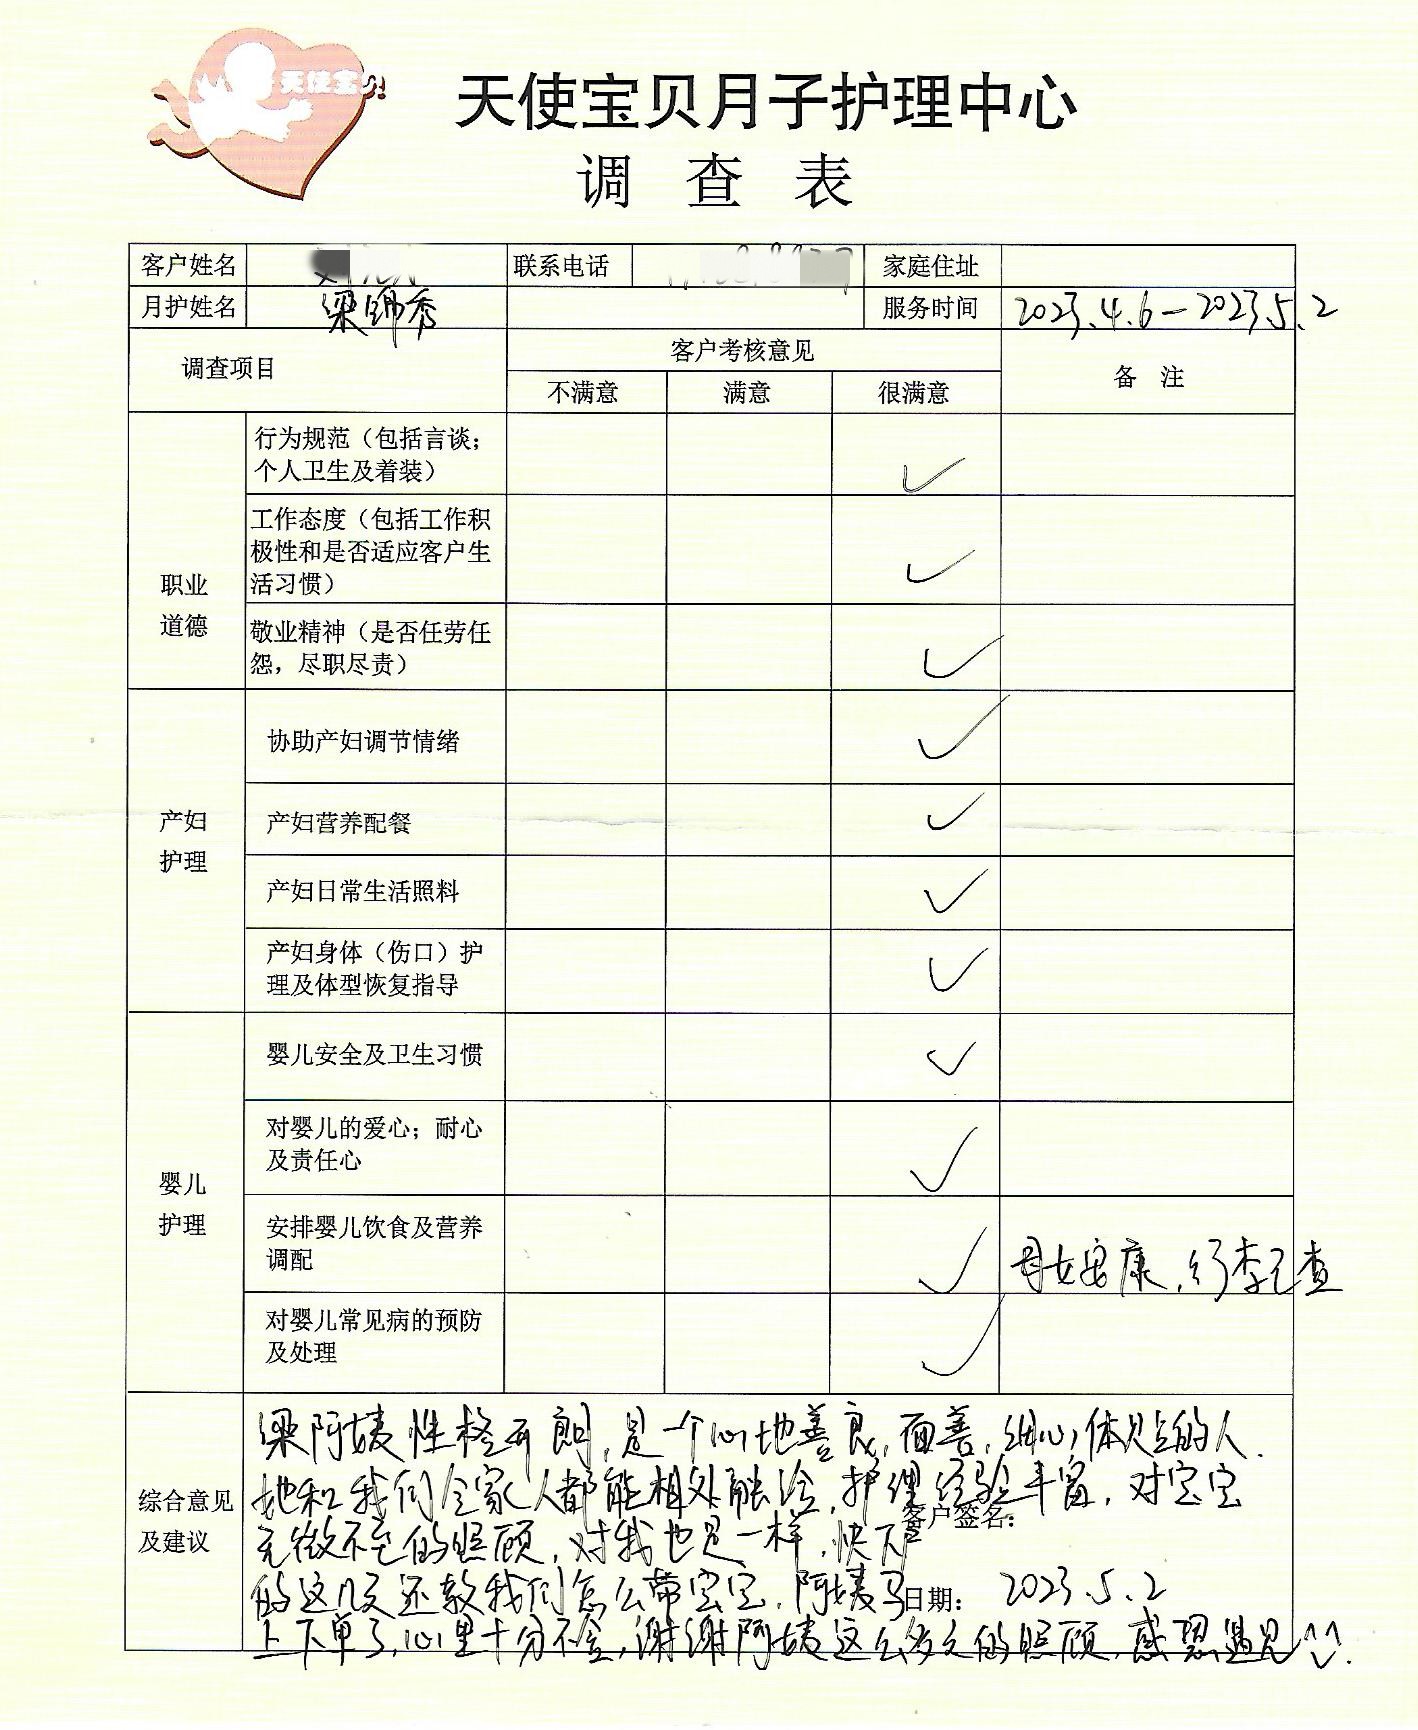 天使宝贝
天使宝贝月子护理中心
调查表
客户姓名 联系电话 家庭住址
月护姓名 梁锦秀 服务时间 2023.4.6-2023.5.2
调查项目 客户考核意见 备 注
不满意 满意 很满意
职业
道德
行为规范（包括言谈；
个人卫生及着装）
✓
工作态度（包括工作积
极性和是否适应客户生
活习惯）
✓
敬业精神（是否任劳任
怨，尽职尽责）
✓
产妇
护理
协助产妇调节情绪 ✓
产妇营养配餐 ✓
产妇日常生活照料 ✓
产妇身体（伤口）护
理及体型恢复指导
✓
婴儿
护理
婴儿安全及卫生习惯 ✓
对婴儿的爱心；耐心
及责任心
✓
安排婴儿饮食及营养
调配
✓ 母女安康,
对婴儿常见病的预防
及处理
✓
综合意见
及建议
梁阿姨性格开朗,是一个心地善良,面善,细心,体贴的人.
她和我们全家人都能相处融洽,护理经验丰富,对宝宝
客户签名：
无微不至的照顾,对我也是一样,快下户
的这几天还教我们怎么带宝宝,阿姨马
日期： 2023.5.2
上下单了,心里十分不舍,谢谢阿姨这么多天的照顾,感恩遇见^_^.